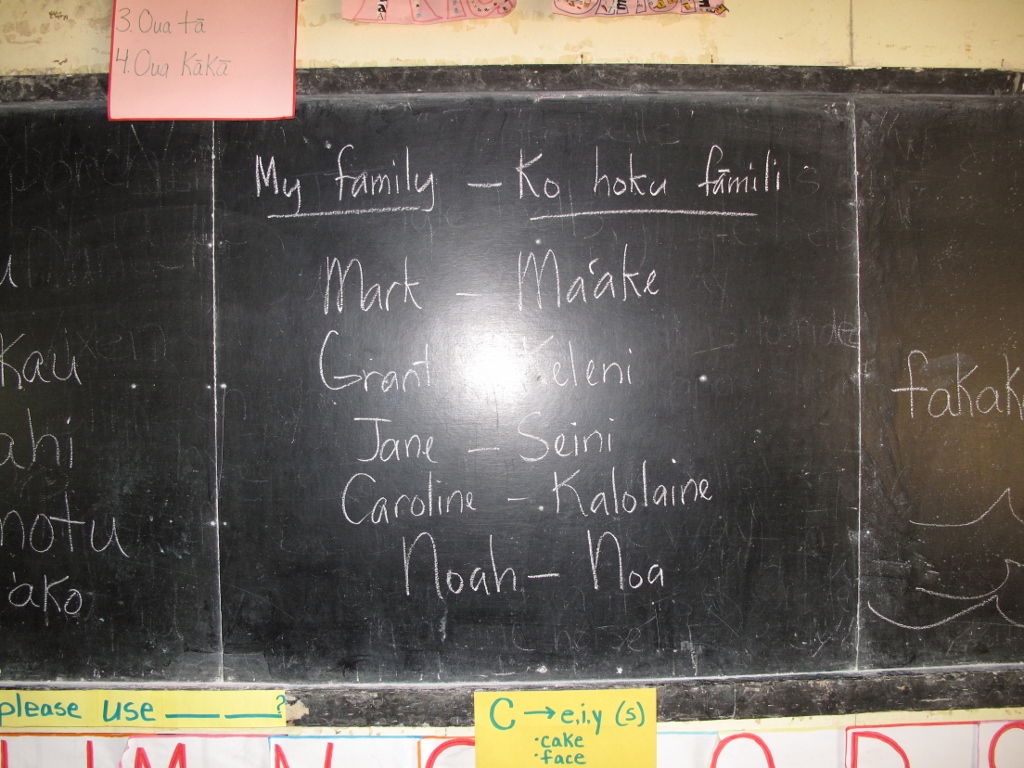 3. Oua tā
4. Oua Kākā
My family - Ko hoku fāmili
Mark - Ma'ake
Grant Keleni
Jane - Seini
Caroline - Kalolaine
Noah - Noa
Kau
ahi
notu
'ako
fakak
please use ___ ___?
C → e,i,y (s)
·cake
·face